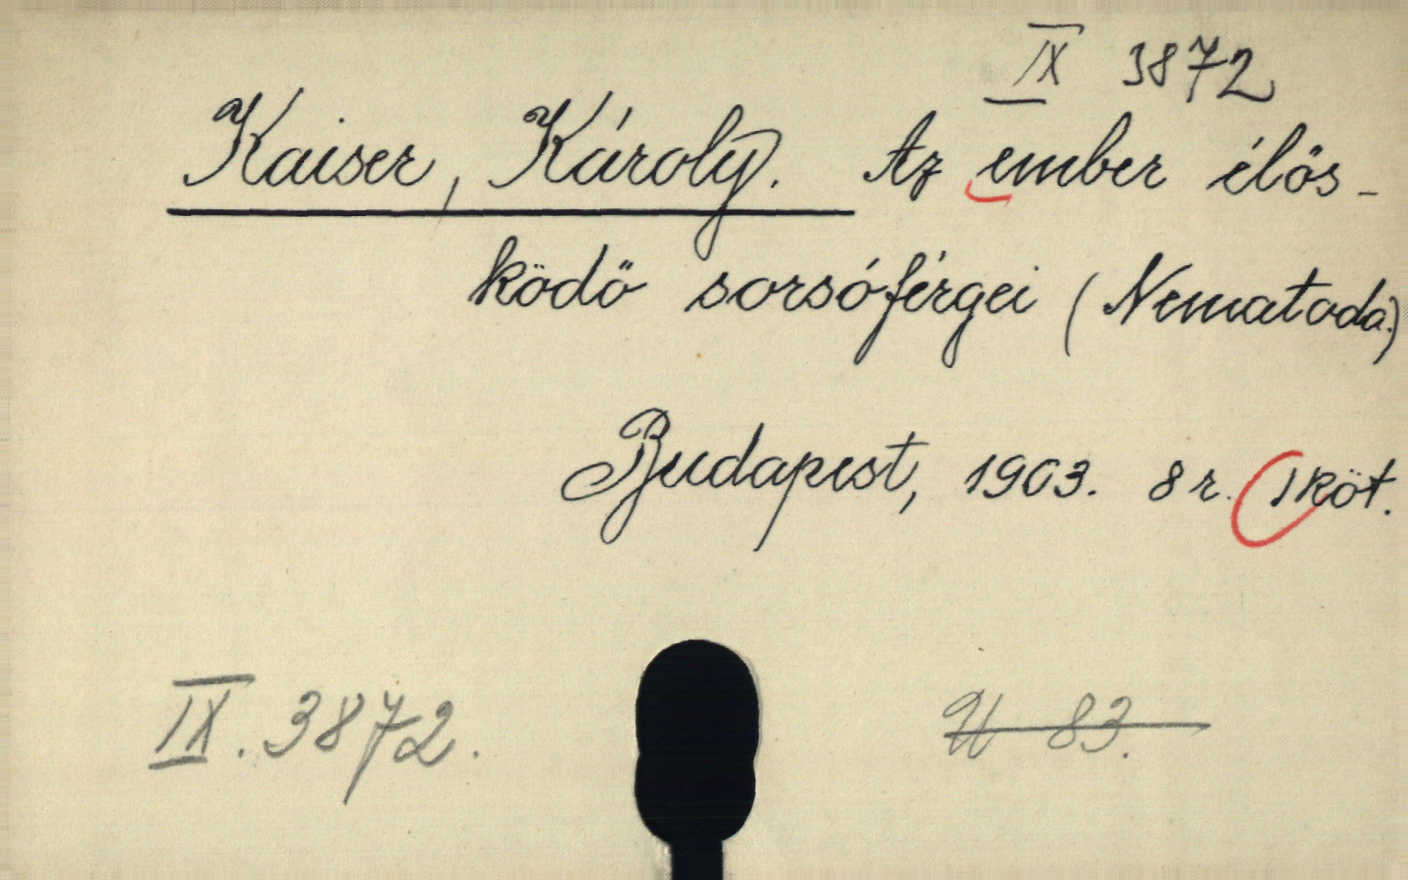 IX 3872
Kaiser, Károly. Az ember élős-
ködő sorsóférgei (Nematoda.)
Budapest, 1903. 8 r. 1 köt.
IX. 3872.
U 83.